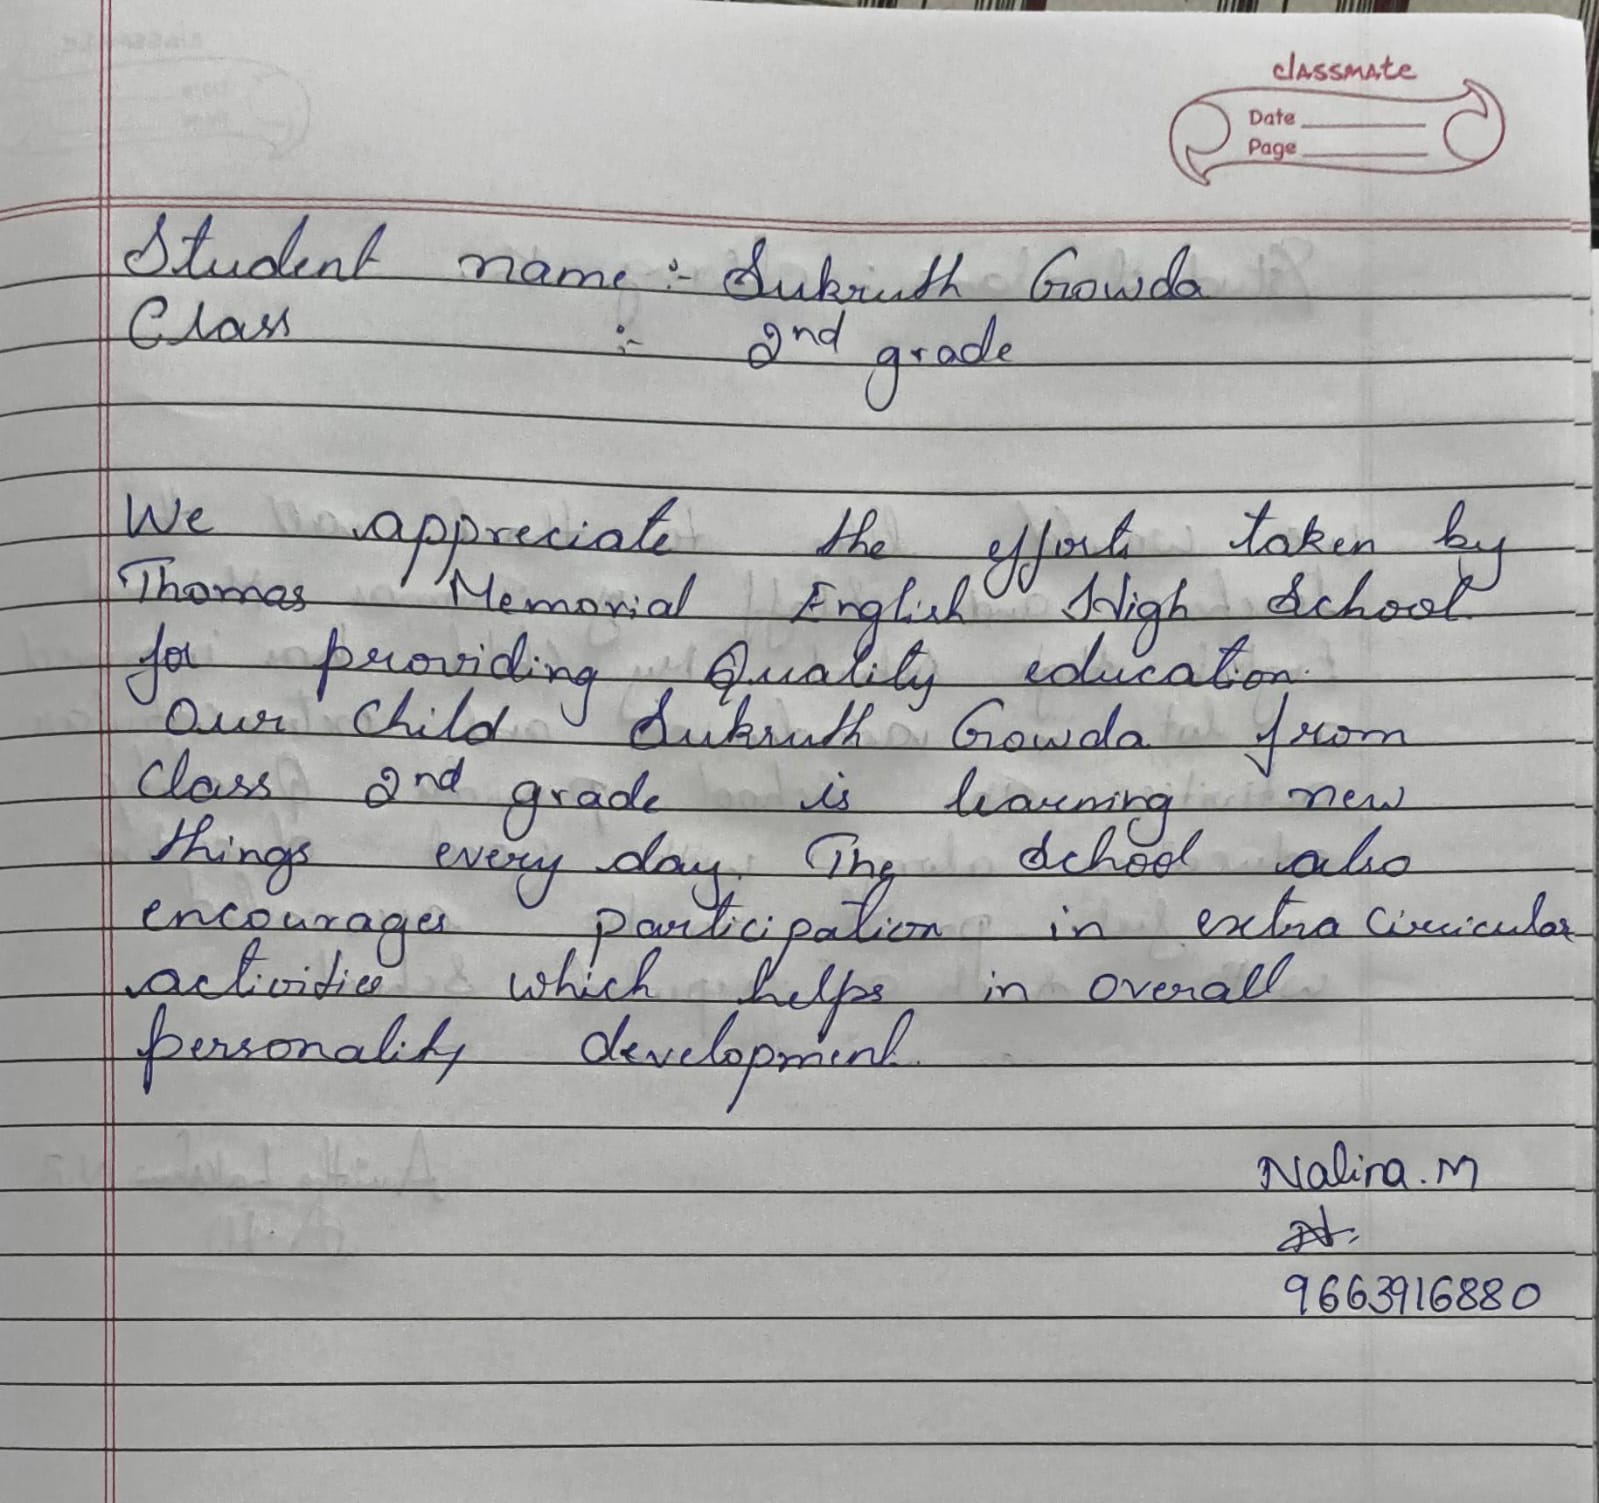 classmate
Date
Page
Student name :- Sukruth Gowda
Class :- 2nd grade
We appreciate the efforts taken by
Thomas Memorial English High School
for providing Quality education.
Our child Sukruth Gowda from
class 2nd grade is learning new
things every day. The school also
encourages participation in extra Ciricular
activities which helps in overall
personality development.
Nalina.M
9663916880